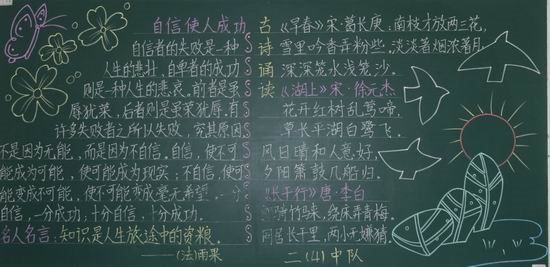 自信使人成功
自信者的失败是一种
人生的悲壮，自卑者的成功
则是一种人生的悲哀，前者是虽
辱犹荣，后者则是虽荣犹辱。有
许多失败者之所以失败，究其原因
不是因为无能，而是因为不自信。自信，使不可
能成为可能，使可能成为现实；不自信，使可
能变成不可能，使不可能变成毫无希望。一分
自信，一分成功；十分自信，十分成功。
名人名言：知识是人生旅途中的资粮。
——（法）雨果
古诗诵读
《早春》宋·葛长庚：南枝才放两三花，
雪里吟香弄粉些。淡淡著烟浓著月，
深深笼水浅笼沙。
《湖上》宋·徐元杰
花开红树乱莺啼，
草长平湖白鹭飞。
风日晴和人意好，
夕阳箫鼓几船归。
《长干行》唐·李白
骑竹马来，绕床弄青梅。
同居长干里，两小无嫌猜。
二（4）中队